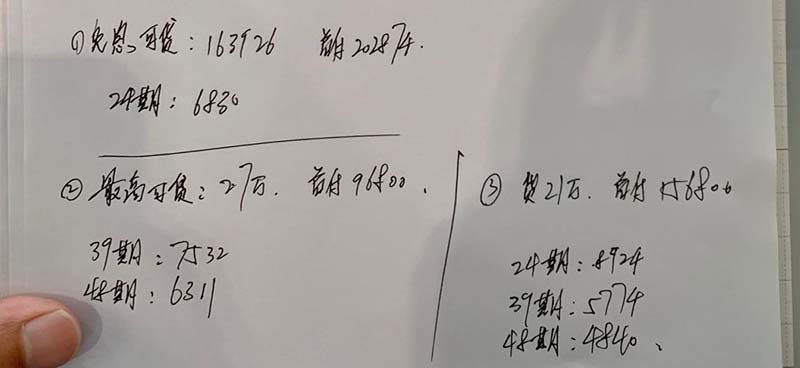 ①免息可贷：163926 首付202874.
24期：6830
②最高可贷：27万. 首付96800、
39期：7532
48期：6311
③贷21万. 首付156800
24期：8924
39期：5774
48期：4840、